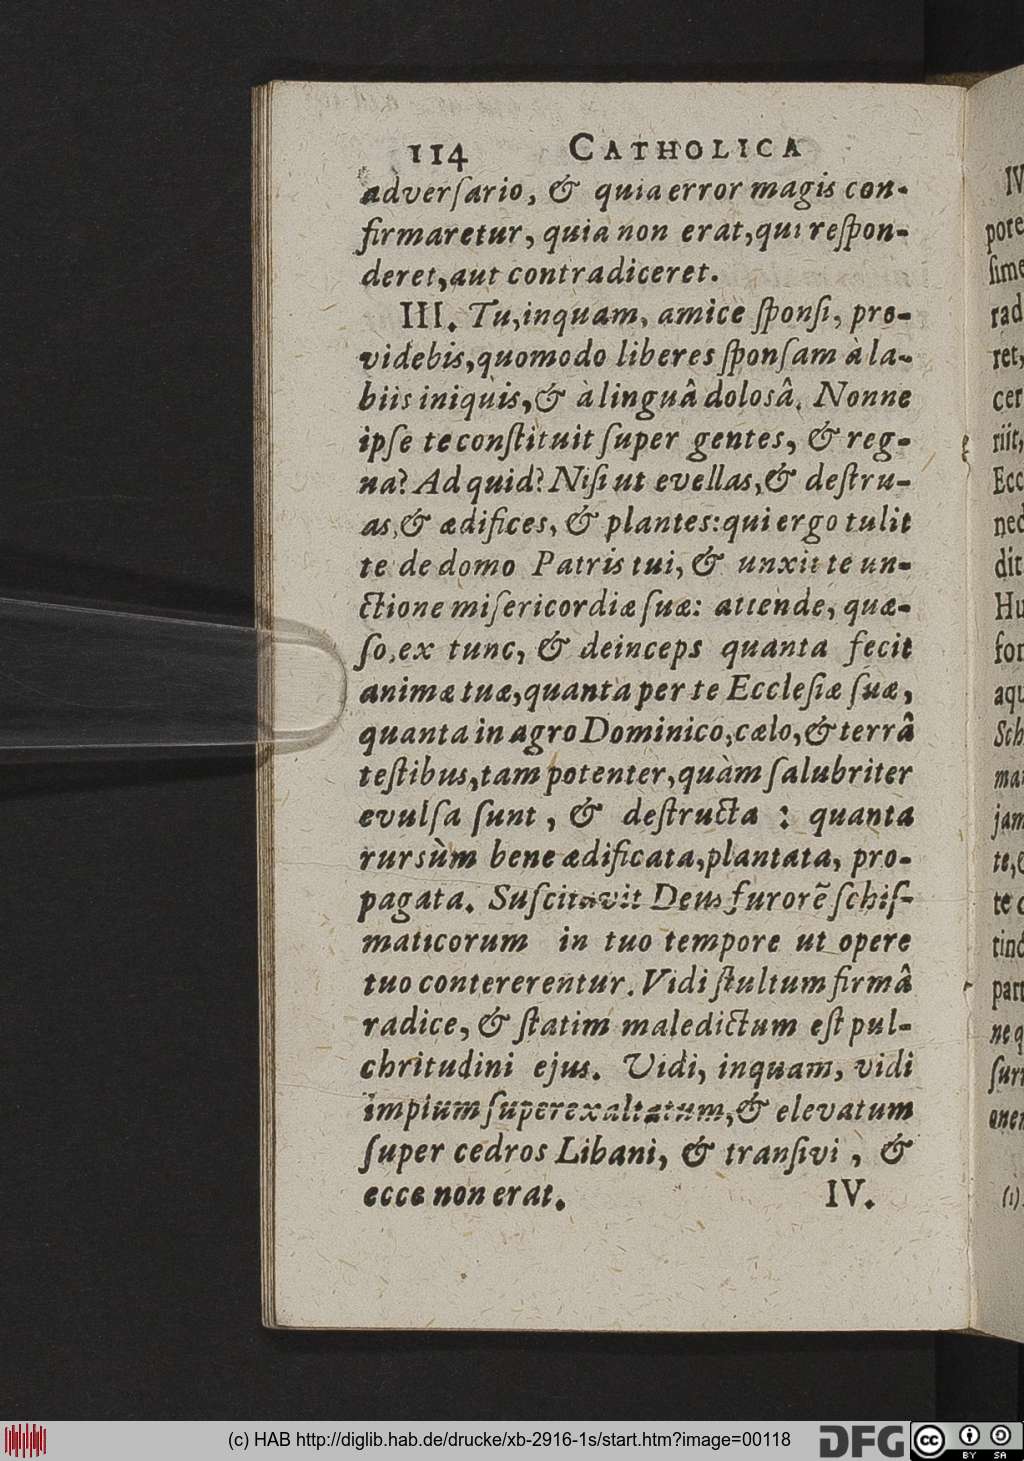 114 CATHOLICA
adverſario, & quia error magis con-
firmaretur, quia non erat, qui reſpon-
deret, aut contradiceret.
III. Tu, inquam, amice ſponſi, pro-
videbis, quomodo liberes ſponſam à la-
biis iniquis, & à linguâ dolosâ. Nonne
ipſe te conſtituit ſuper gentes, & reg-
na? Ad quid? Niſi ut evellas, & deſtru-
as, & ædifices, & plantes: qui ergo tulit
te de domo Patris tui, & unxit te un-
ctione miſericordiæ ſuæ: attende, quæ-
ſo, ex tunc, & deinceps quanta fecit
animæ tuæ, quanta per te Eccleſiæ ſuæ,
quanta in agro Dominico, cælo, & terrâ
teſtibus, tam potenter, quàm ſalubriter
evulſa ſunt, & deſtructa : quanta
rursùm bene ædificata, plantata, pro-
pagata. Suſcitavit Deus furorẽ ſchiſ-
maticorum in tuo tempore ut opere
tuo contererentur. Vidi ſtultum firmâ
radice, & ſtatim maledictum eſt pul-
chritudini ejus. Vidi, inquam, vidi
impium ſuperexaltatum, & elevatum
ſuper cedros Libani, & tranſivi, &
ecce non erat. IV.
IV
pore
ſime
rad
ret,
cer
riit,
Ecc
ned
dit
Hu
for
aqu
Sch
mat
jam
te,
te
tinc
part
ne q
ſurr
oner
(1)
(c) HAB http://diglib.hab.de/drucke/xb-2916-1s/start.htm?image=00118
DFG
cc BY SA